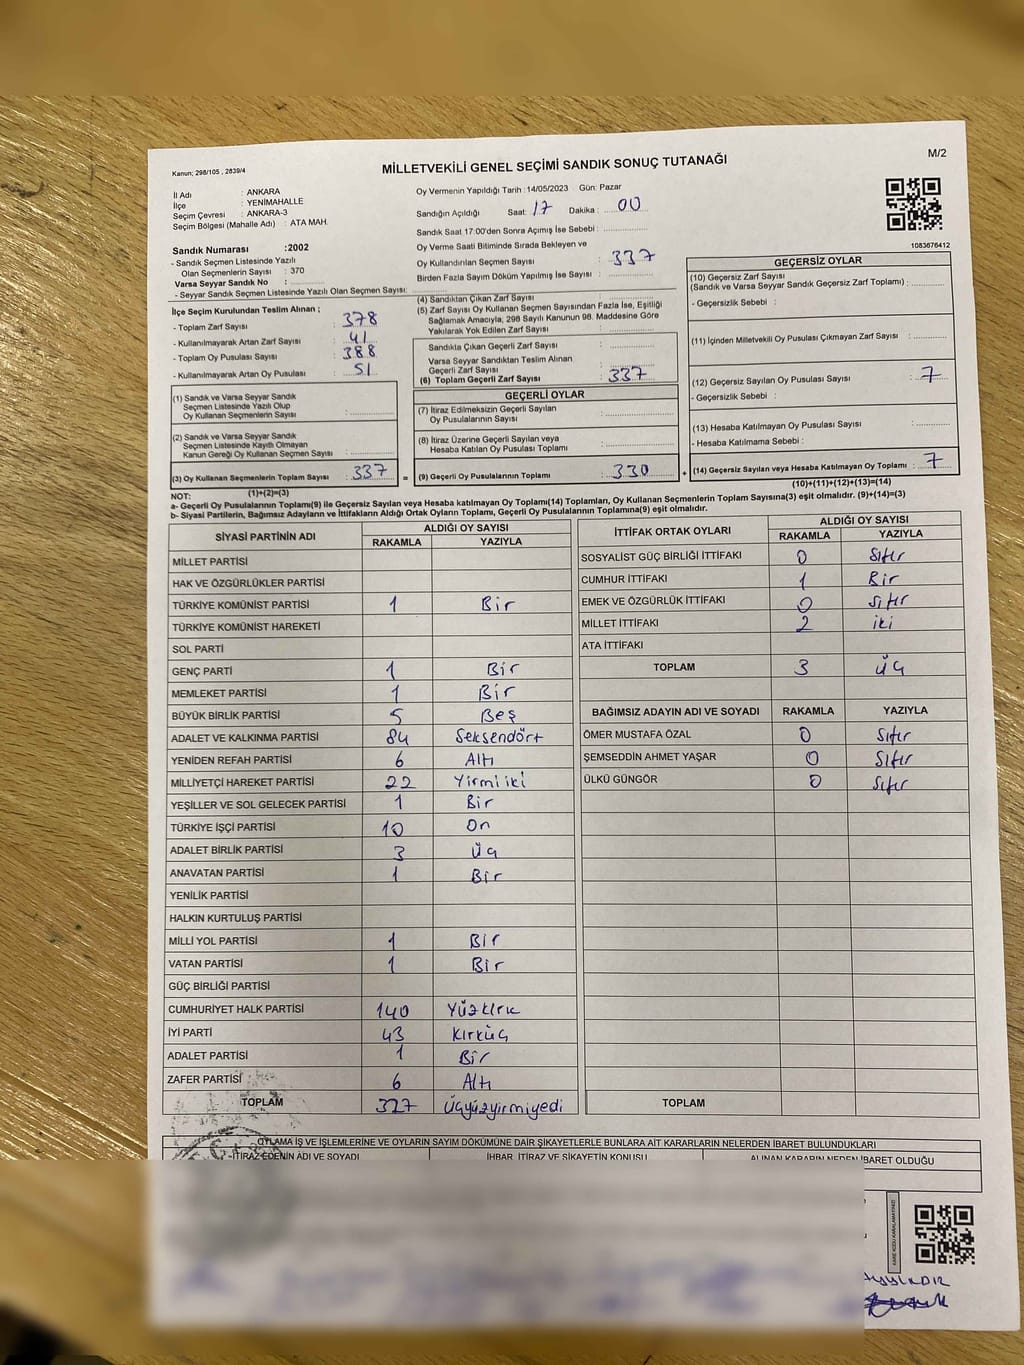 Kanun; 298/105 , 2839/4
MİLLETVEKİLİ GENEL SEÇİMİ SANDIK SONUÇ TUTANAĞI
M/2
İl Adı : ANKARA
İlçe : YENİMAHALLE
Seçim Çevresi : ANKARA-3
Seçim Bölgesi (Mahalle Adı) : ATA MAH.
Sandık Numarası :2002
- Sandık Seçmen Listesinde Yazılı
Olan Seçmenlerin Sayısı : 370
Varsa Seyyar Sandık No :
- Seyyar Sandık Seçmen Listesinde Yazılı Olan Seçmen Sayısı:
Oy Vermenin Yapıldığı Tarih : 14/05/2023 Gün: Pazar
Sandığın Açıldığı Saat: 17 Dakika : 00
Sandık Saat 17:00'den Sonra Açılmış İse Sebebi :
Oy Verme Saati Bitiminde Sırada Bekleyen ve
Oy Kullandırılan Seçmen Sayısı : 337
Birden Fazla Sayım Döküm Yapılmış İse Sayısı :
1083676412
İlçe Seçim Kurulundan Teslim Alınan ;
- Toplam Zarf Sayısı : 378
- Kullanılmayarak Artan Zarf Sayısı : 41
- Toplam Oy Pusulası Sayısı : 388
- Kullanılmayarak Artan Oy Pusulası : 51
(1) Sandık ve Varsa Seyyar Sandık
Seçmen Listesinde Yazılı Olup
Oy Kullanan Seçmenlerin Sayısı :
(2) Sandık ve Varsa Seyyar Sandık
Seçmen Listesinde Kayıtlı Olmayan
Kanun Gereği Oy Kullanan Seçmen Sayısı :
(3) Oy Kullanan Seçmenlerin Toplam Sayısı : 337
(1)+(2)=(3)
(4) Sandıktan Çıkan Zarf Sayısı :
(5) Zarf Sayısı Oy Kullanan Seçmen Sayısından Fazla İse, Eşitliği
Sağlamak Amacıyla; 298 Sayılı Kanunun 98. Maddesine Göre
Yakılarak Yok Edilen Zarf Sayısı :
Sandıkta Çıkan Geçerli Zarf Sayısı :
Varsa Seyyar Sandıktan Teslim Alınan
Geçerli Zarf Sayısı :
(6) Toplam Geçerli Zarf Sayısı : 337
GEÇERLİ OYLAR
(7) İtiraz Edilmeksizin Geçerli Sayılan
Oy Pusulalarının Sayısı :
(8) İtiraz Üzerine Geçerli Sayılan veya
Hesaba Katılan Oy Pusulası Toplamı :
= (9) Geçerli Oy Pusulalarının Toplamı : 330 +
GEÇERSİZ OYLAR
(10) Geçersiz Zarf Sayısı
(Sandık ve Varsa Seyyar Sandık Geçersiz Zarf Toplamı) :
- Geçersizlik Sebebi :
(11) İçinden Milletvekili Oy Pusulası Çıkmayan Zarf Sayısı :
(12) Geçersiz Sayılan Oy Pusulası Sayısı : 7
- Geçersizlik Sebebi :
(13) Hesaba Katılmayan Oy Pusulası Sayısı :
- Hesaba Katılmama Sebebi :
(14) Geçersiz Sayılan veya Hesaba Katılmayan Oy Toplamı : 7
(10)+(11)+(12)+(13)=(14)
NOT:
a- Geçerli Oy Pusulalarının Toplamı(9) ile Geçersiz Sayılan veya Hesaba katılmayan Oy Toplamı(14) Toplamları, Oy Kullanan Seçmenlerin Toplam Sayısına(3) eşit olmalıdır. (9)+(14)=(3)
b- Siyasi Partilerin, Bağımsız Adayların ve İttifakların Aldığı Ortak Oyların Toplamı, Geçerli Oy Pusulalarının Toplamına(9) eşit olmalıdır.
SİYASİ PARTİNİN ADI ALDIĞI OY SAYISI
RAKAMLA YAZIYLA
MİLLET PARTİSİ
HAK VE ÖZGÜRLÜKLER PARTİSİ
TÜRKİYE KOMÜNİST PARTİSİ 1 Bir
TÜRKİYE KOMÜNİST HAREKETİ
SOL PARTİ
GENÇ PARTİ 1 Bir
MEMLEKET PARTİSİ 1 Bir
BÜYÜK BİRLİK PARTİSİ 5 Beş
ADALET VE KALKINMA PARTİSİ 84 Seksendört
YENİDEN REFAH PARTİSİ 6 Altı
MİLLİYETÇİ HAREKET PARTİSİ 22 Yirmiiki
YEŞİLLER VE SOL GELECEK PARTİSİ 1 Bir
TÜRKİYE İŞÇİ PARTİSİ 10 On
ADALET BİRLİK PARTİSİ 3 Üç
ANAVATAN PARTİSİ 1 Bir
YENİLİK PARTİSİ
HALKIN KURTULUŞ PARTİSİ
MİLLİ YOL PARTİSİ 1 Bir
VATAN PARTİSİ 1 Bir
GÜÇ BİRLİĞİ PARTİSİ
CUMHURİYET HALK PARTİSİ 140 Yüzkırk
İYİ PARTİ 43 Kırküç
ADALET PARTİSİ 1 Bir
ZAFER PARTİSİ 6 Altı
TOPLAM 327 Üçyüzyirmiyedi
İTTİFAK ORTAK OYLARI ALDIĞI OY SAYISI
RAKAMLA YAZIYLA
SOSYALİST GÜÇ BİRLİĞİ İTTİFAKI 0 Sıfır
CUMHUR İTTİFAKI 1 Bir
EMEK VE ÖZGÜRLÜK İTTİFAKI 0 Sıfır
MİLLET İTTİFAKI 2 iki
ATA İTTİFAKI
TOPLAM 3 Üç
BAĞIMSIZ ADAYIN ADI VE SOYADI RAKAMLA YAZIYLA
ÖMER MUSTAFA ÖZAL 0 Sıfır
ŞEMSEDDİN AHMET YAŞAR 0 Sıfır
ÜLKÜ GÜNGÖR 0 Sıfır
TOPLAM
OYLAMA İŞ VE İŞLEMLERİNE VE OYLARIN SAYIM DÖKÜMÜNE DAİR ŞİKAYETLERLE BUNLARA AİT KARARLARIN NELERDEN İBARET BULUNDUKLARI
İTİRAZ EDENİN ADI VE SOYADI İHBAR, İTİRAZ VE ŞİKAYETİN KONUSU ALINAN KARARIN NEDEN İBARET OLDUĞU